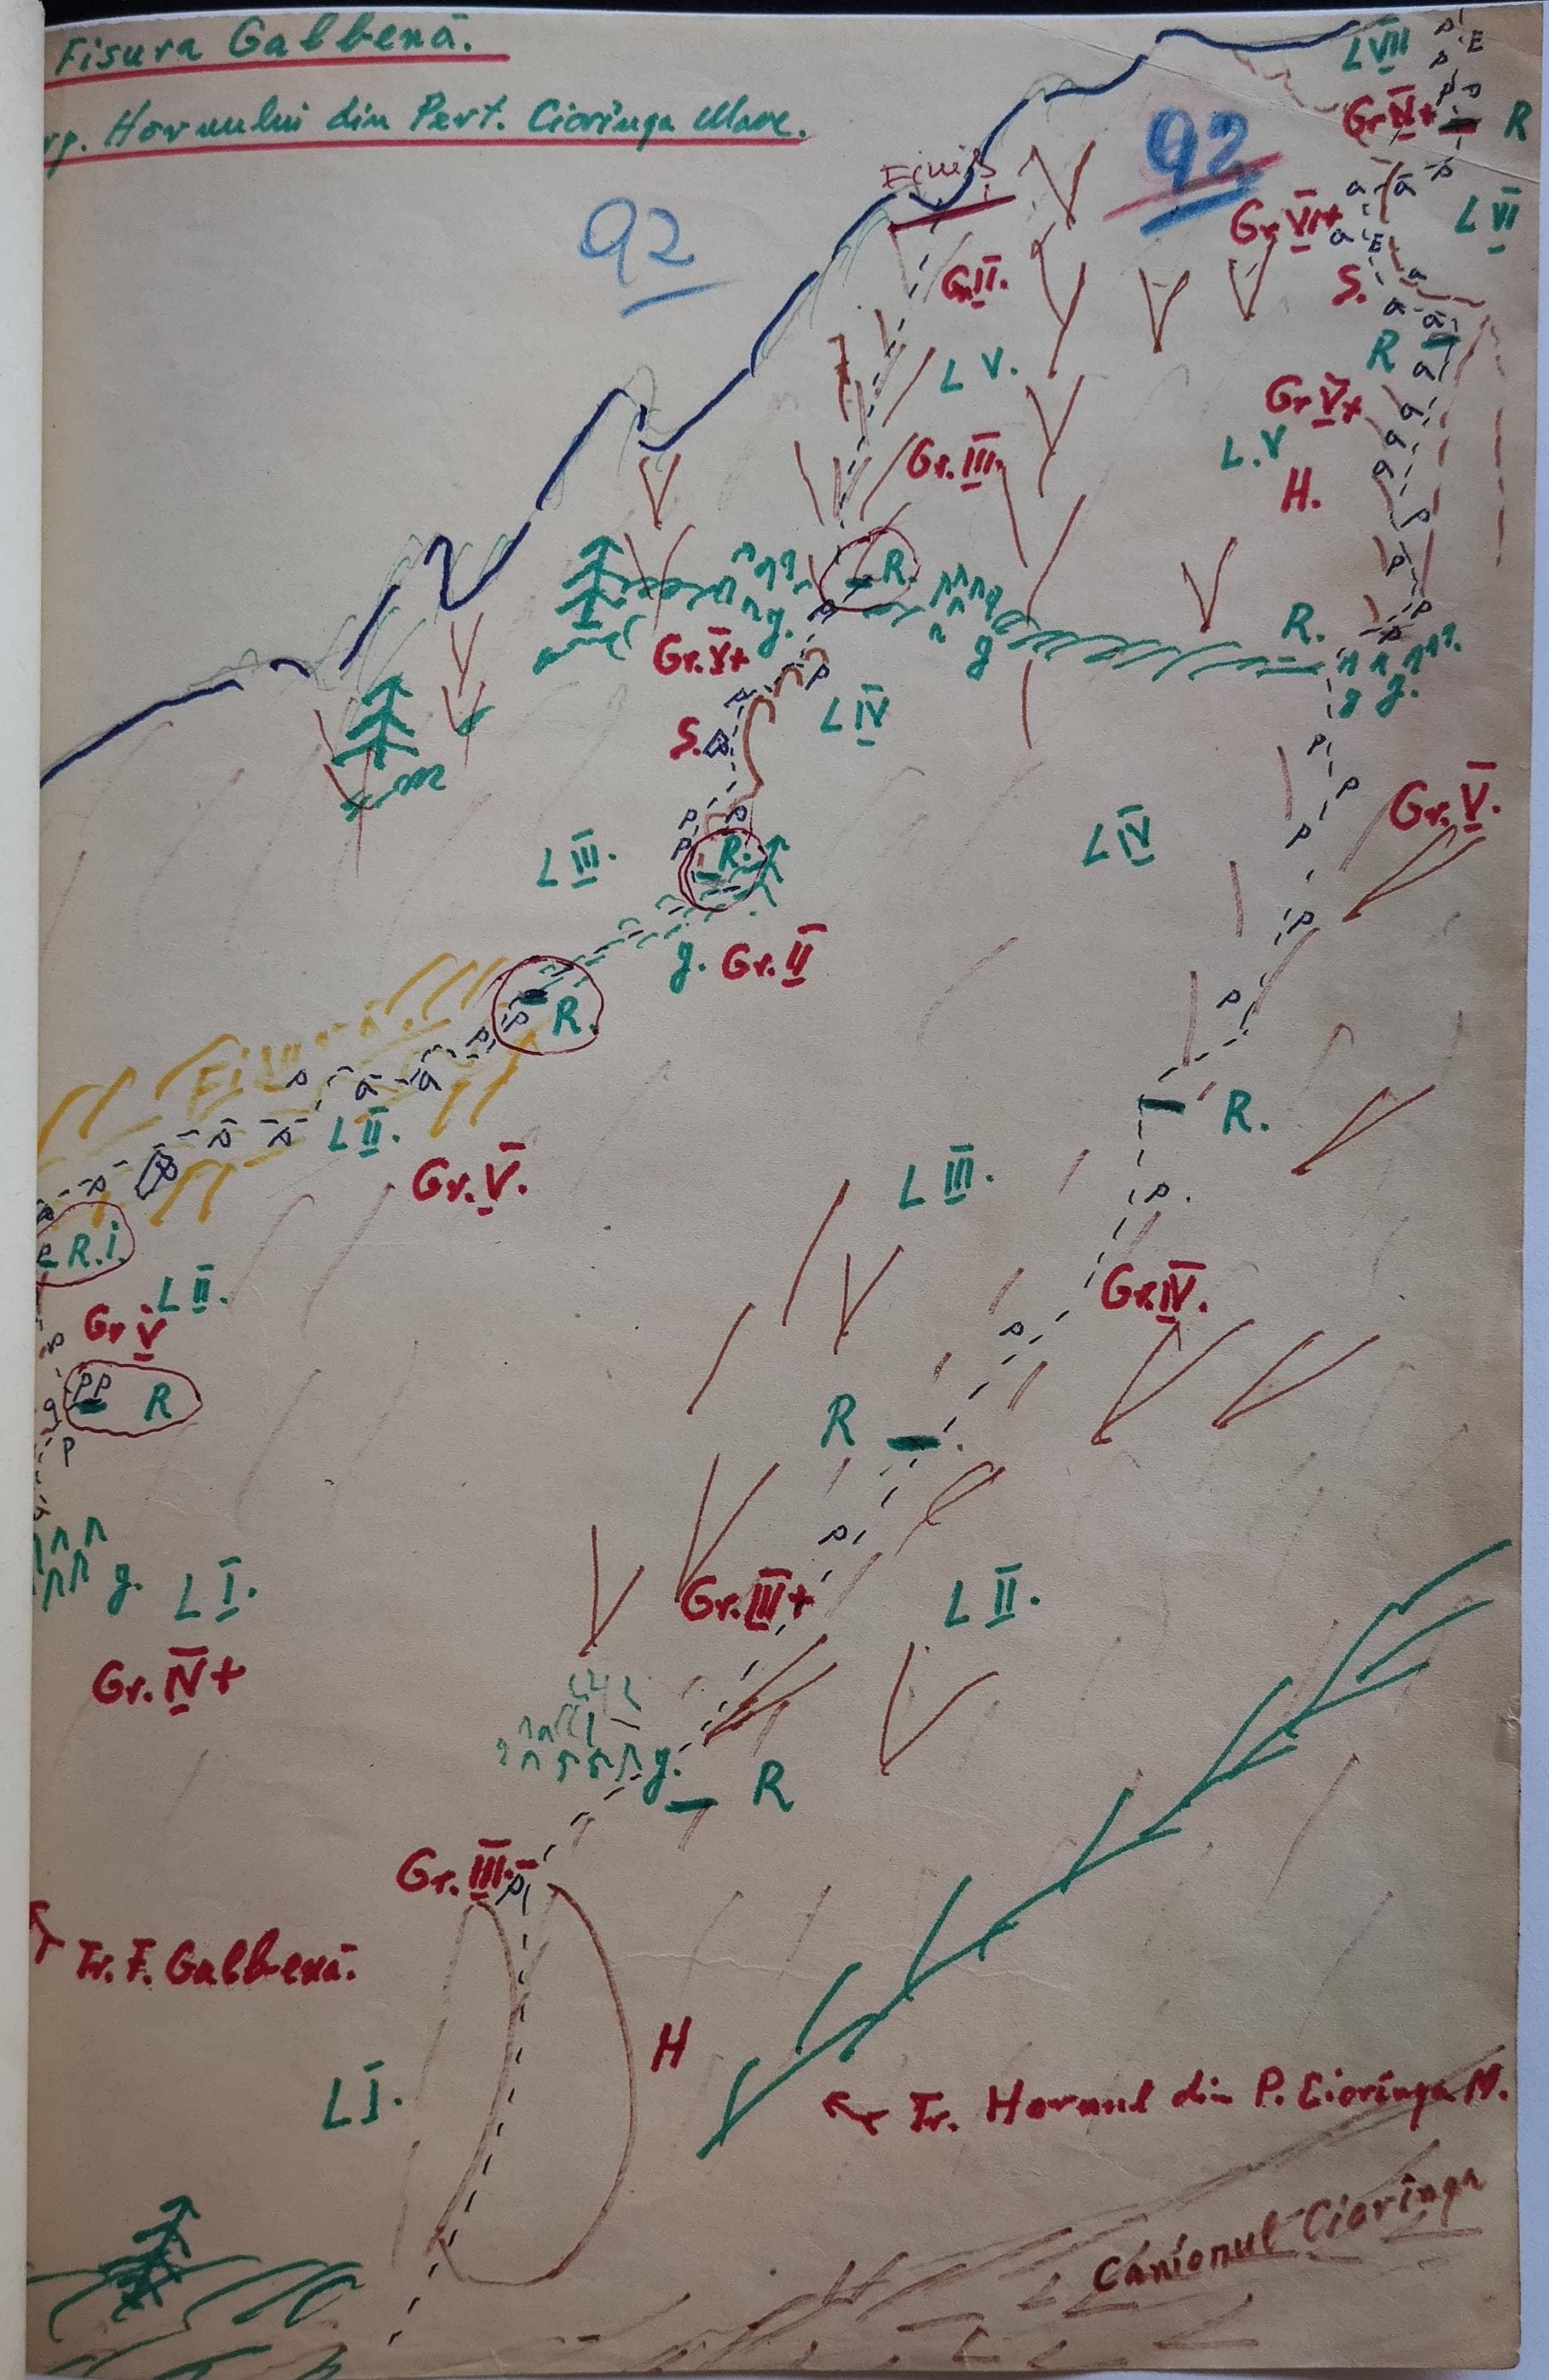 Fisura Galbenă.
Hornului din Peret. Ciorînga Mare.
L VII
P
E
P
P P
Gr IV+
R
92
92
Finiș
P
a a
Gr VI+
a E
L VI
S.
a
a a
R
a
Gr II.
L V.
Gr V+
a
L.V
a
a
H.
P
P
Gr. III.
R.
P
g.
g
R.
P
P
g g.
Gr. V+
P
P
S.
L IV
P
P
Gr. V.
P P
P
R.
L III.
L IV
P
P
g. Gr. II
P
R.
P
P
Fisura
P
a a
P P
L II.
R.
Gr. V.
L III.
P.
P
R.I.
L II.
Gr V
P
P P
R
P
Gr. IV.
P
R
P
g. L I.
Gr. III+
L II.
Gr. IV+
g.
R
Gr. III.-
P
Tr. F. Galbenă.
H
L I.
Tr. Hornul din P. Ciorînga M.
Canionul Ciorînga